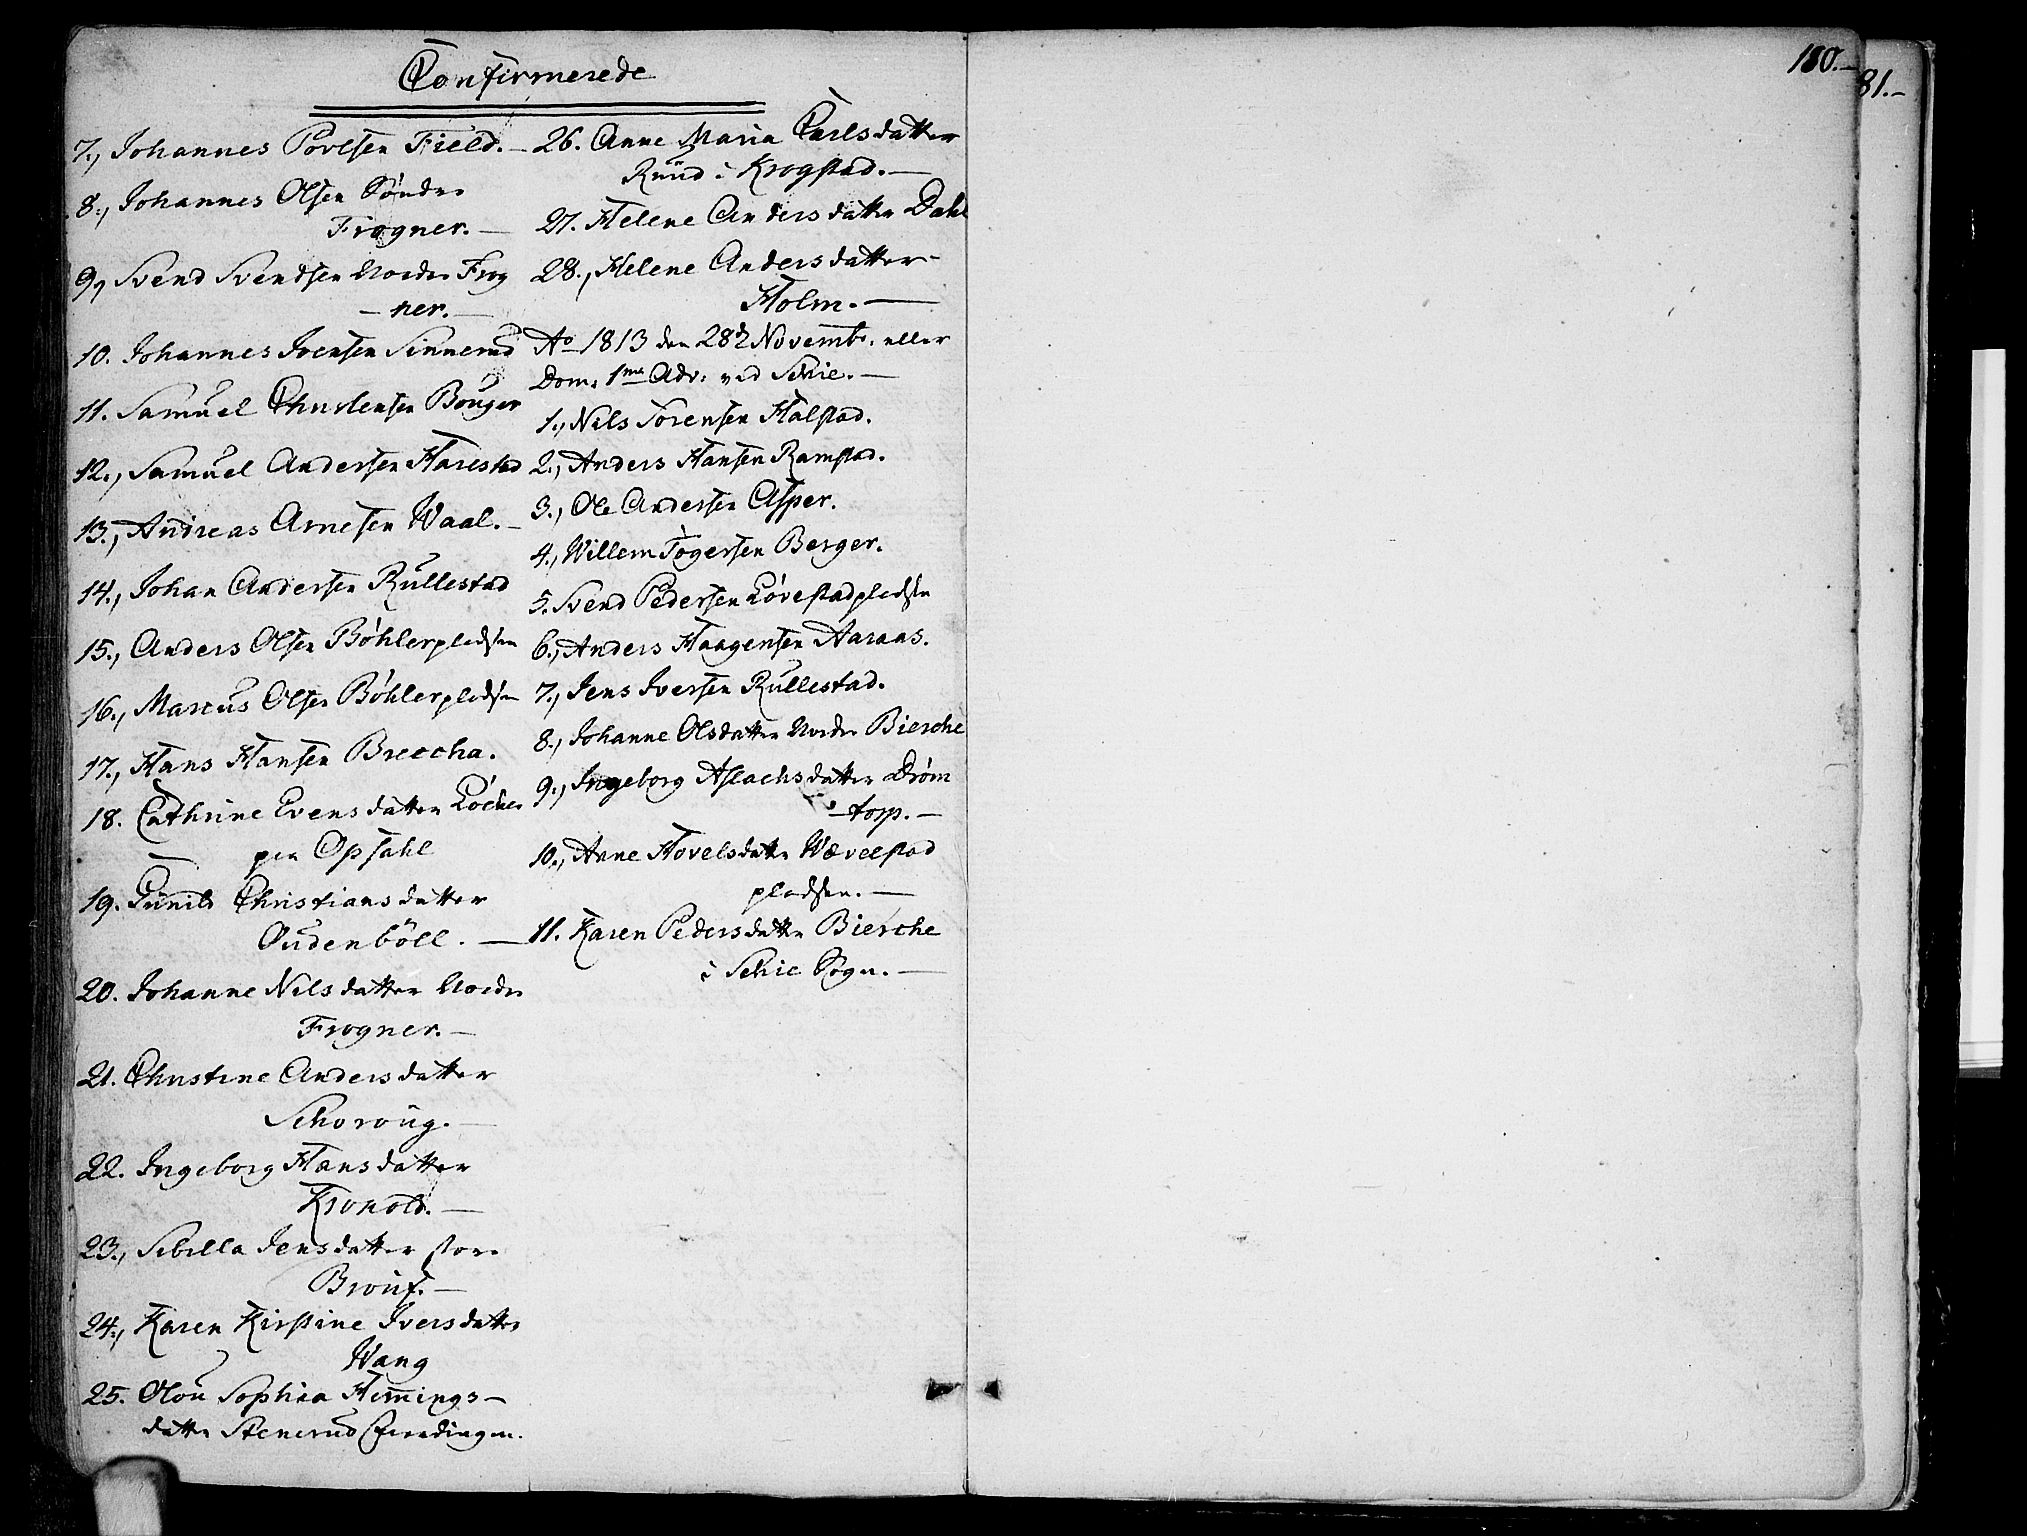 Confirmerede
7., Johannes Povelsen Field.
8., Johannes Olsen Sönder
Frogner.
9, Svend Svendsen Norder Frog
- ner.
10. Johannes Iversen Sinnerud
11. Samuel Christensen Bouger
12., Samuel Andersen Harestad
13., Andreas Arnesen Waal.
14., Johan Andersen Rullestad
15., Anders Olsen Böhlerpladsen
16., Marcus Olsen Böhlerpladsen
17., Hans Hansen Breecha.
18. Cathrine Evensdatter Löcher
paa Opsahl
19. Gunild Christiansdatter
Oudenböll.
20. Johanne Nilsdatter Norder
Frogner.
21. Christine Andersdatter
Schoroug.
22. Ingeborg Hansdatter
Kronold.
23., Sibella Jensdatter store
Brouf.
24., Karen Kirstine Iversdatter
Wang
25. Olou Sophia Hemings-
datter Stenerud
26. Anne Maria Carlsdatter
Ruud i Krogstad.
27. Helene Andersdatter Dahl
28., Helene Andersdatter
Holm.
Ao 1813 den 28de Novembr. eller
Dom. 1ma Adv. ved Schie.
1., Nils Sörensen Halstad.
2., Anders Hansen Ramstad.
3., Ole Andersen Asper.
4., Willem Togersen Berger.
5. Svend Pedersen Lövestadpladsen
6., Anders Haagensen Aaraas.
7., Jens Iversen Rullestad.
8., Johanne Olsdatter Norder Bierche
9., Ingeborg Aslachsdatter Dröm
- torp.
10., Anne Hovelsdatter Wævelstad
pladsen.
11. Karen Pedersdatter Bierche
i Schie Sogn.
180.
81.